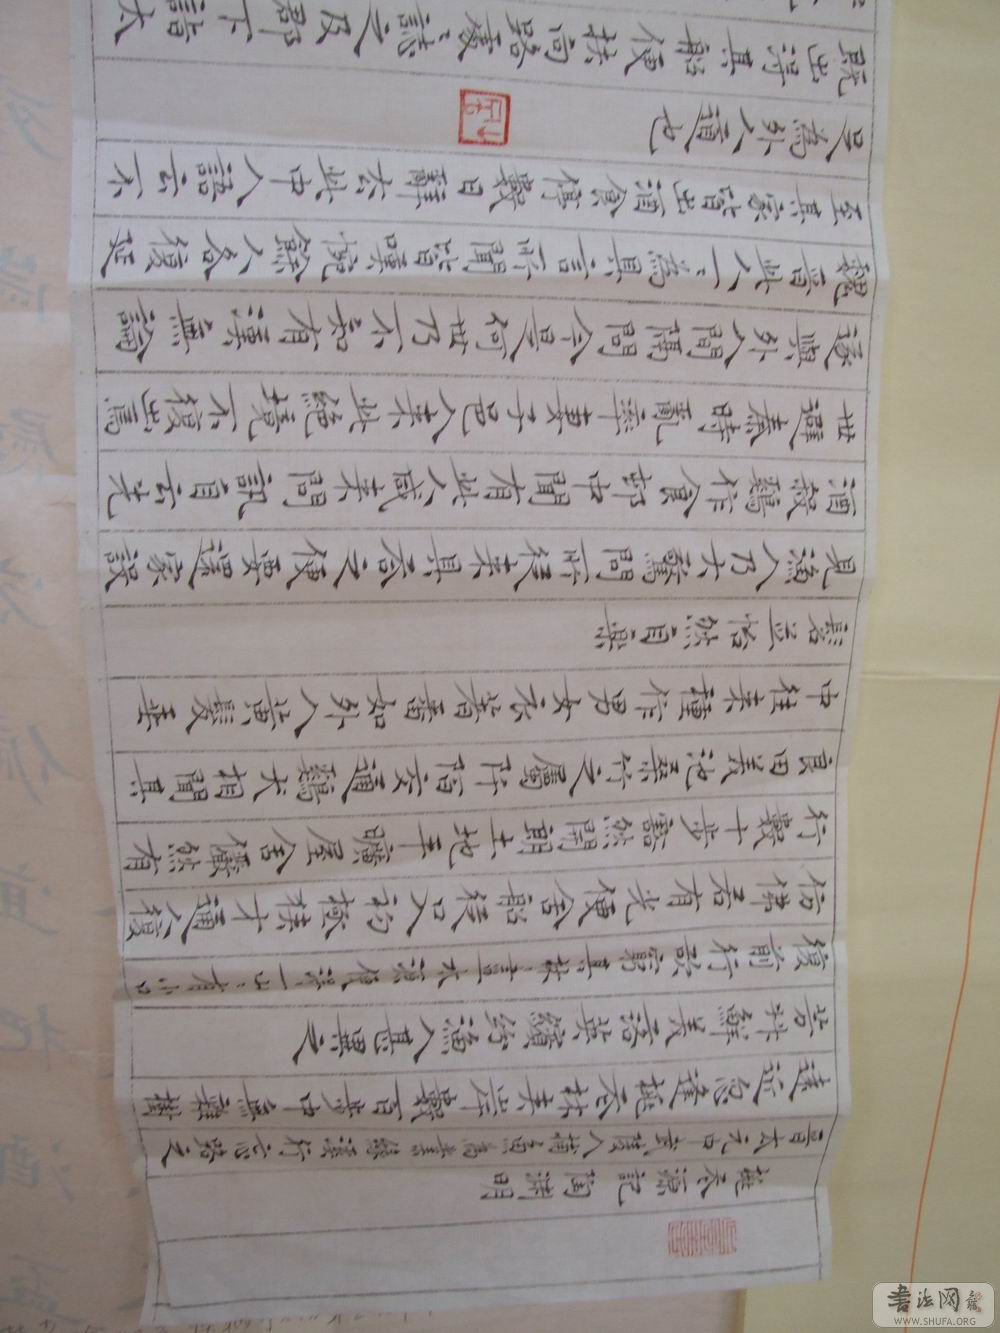 桃花源記 陶淵明
晉太元中武陵人捕魚為業緣溪行忘路之
遠近忽逢桃花林夾岸數百步中無雜樹
芳草鮮美落英繽紛漁人甚異之
復前行欲窮其林林盡水源便得一山山有小口
仿佛若有光便舍船從口入初極狹才通人復
行數十步豁然開朗土地平曠屋舍儼然有
良田美池桑竹之屬阡陌交通鷄犬相聞其
中往來種作男女衣著悉如外人黃髮垂
髫並怡然自樂
見漁人乃大驚問所從來具答之便要還家設
酒殺鷄作食邨中聞有此人咸來問訊自云先
世避秦時亂率妻子邑人來此絕境不復出焉
遂與外人間隔問今是何世乃不知有漢無論
魏晉此人一一為具言所聞皆嘆惋餘人各復延
至其家皆出酒食停數日辭去此中人語云不
足為外人道也
既出得其船便扶向路處處誌之及郡下詣太
書法网
WWW.SHUFA.ORG